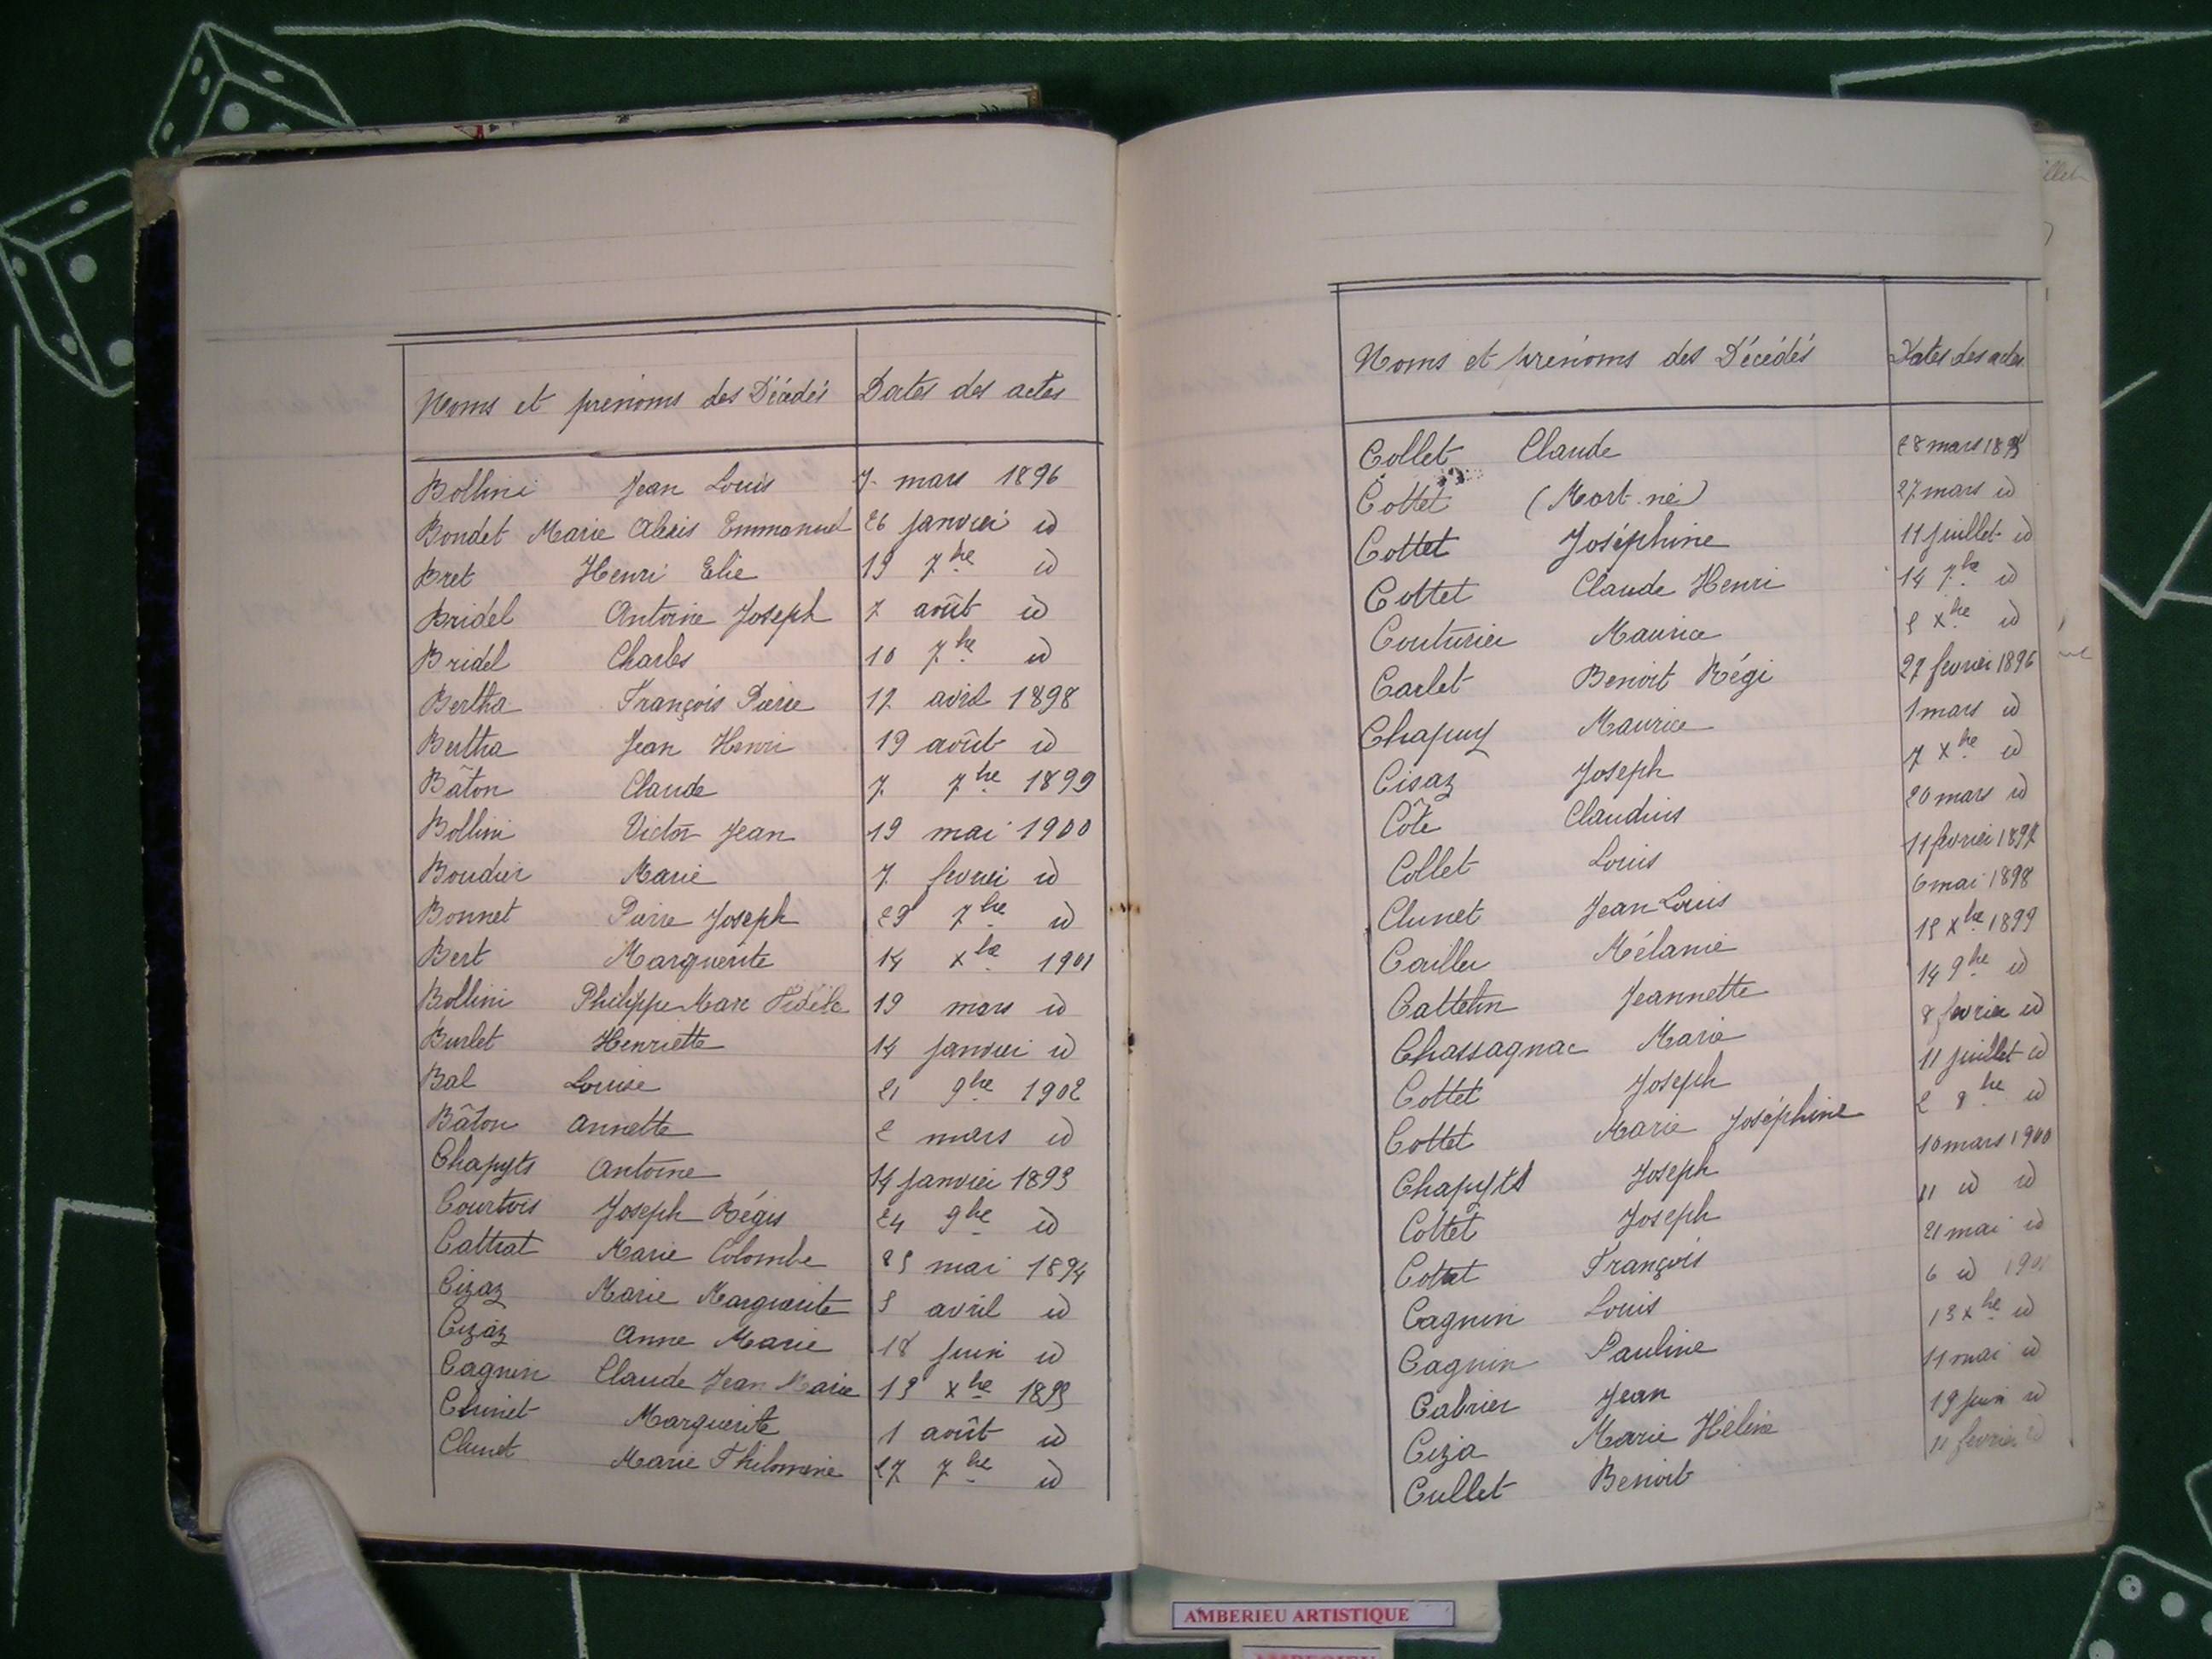 Noms et prénoms des Décédés Dates des actes
Bollini Jean Louis 7 mars 1896
Boudet Marie Alexis Emmanuel 26 janvier id
Bret Henri Elie 19 7bre id
Bridel Antoine Joseph 7 août id
Bridel Charles 10 7bre id
Bertha François Pierre 12 avril 1898
Bertha Jean Henri 19 août id
Bâton Claude 7 7bre 1899
Bollini Victor Jean 19 mai 1900
Boudier Marie 7 fevrier id
Bonnet Pierre Joseph 29 7bre id
Bert Marguerite 14 Xbre 1901
Bollini Philippe Marc Fidèle 19 mars id
Burlet Henriette 14 janvier id
Bal Louise 21 9bre 1902
Bâton Annette 2 mars id
Chapyts Antoine 14 janvier 1893
Courtois Joseph Régis 24 9bre id
Cattrat Marie Colombe 25 mai 1894
Cizaz Marie Marguerite 5 avril id
Cizaz Anne Marie 18 juin id
Cagnin Claude Jean Marie 13 Xbre 1895
Clunet Marguerite 1 août id
Clunet Marie Philomène 27 7bre id
Noms et prénoms des Décédés Dates des actes
Collet Claude 28 mars 1895
Cottet (Mort-né) 27 mars id
Cottet Joséphine 11 juillet id
Cottet Claude Henri 14 7bre id
Couturier Maurice 5 Xbre id
Carlet Benoit Régi 27 fevrier 1896
Chapuy Maurice 1 mars id
Cisaz Joseph 7 Xbre id
Côte Claudius 20 mars id
Collet Louis 11 fevrier 1897
Clunet Jean Louis 6 mai 1898
Cailler Mélanie 15 Xbre 1899
Cattelin Jeannette 14 9bre id
Chassagnac Marie 8 fevrier id
Cottet Joseph 11 juillet id
Cottet Marie Joséphine 2 8bre id
Chapyts Joseph 10 mars 1900
Cottet Joseph 11 id id
Cottet François 21 mai id
Cagnin Louis 6 id 1901
Cagnin Pauline 13 Xbre id
Cabrier Jean 11 mai id
Ciza Marie Hélène 19 juin id
Cullet Benoit 11 fevrier id
AMBERIEU ARTISTIQUE